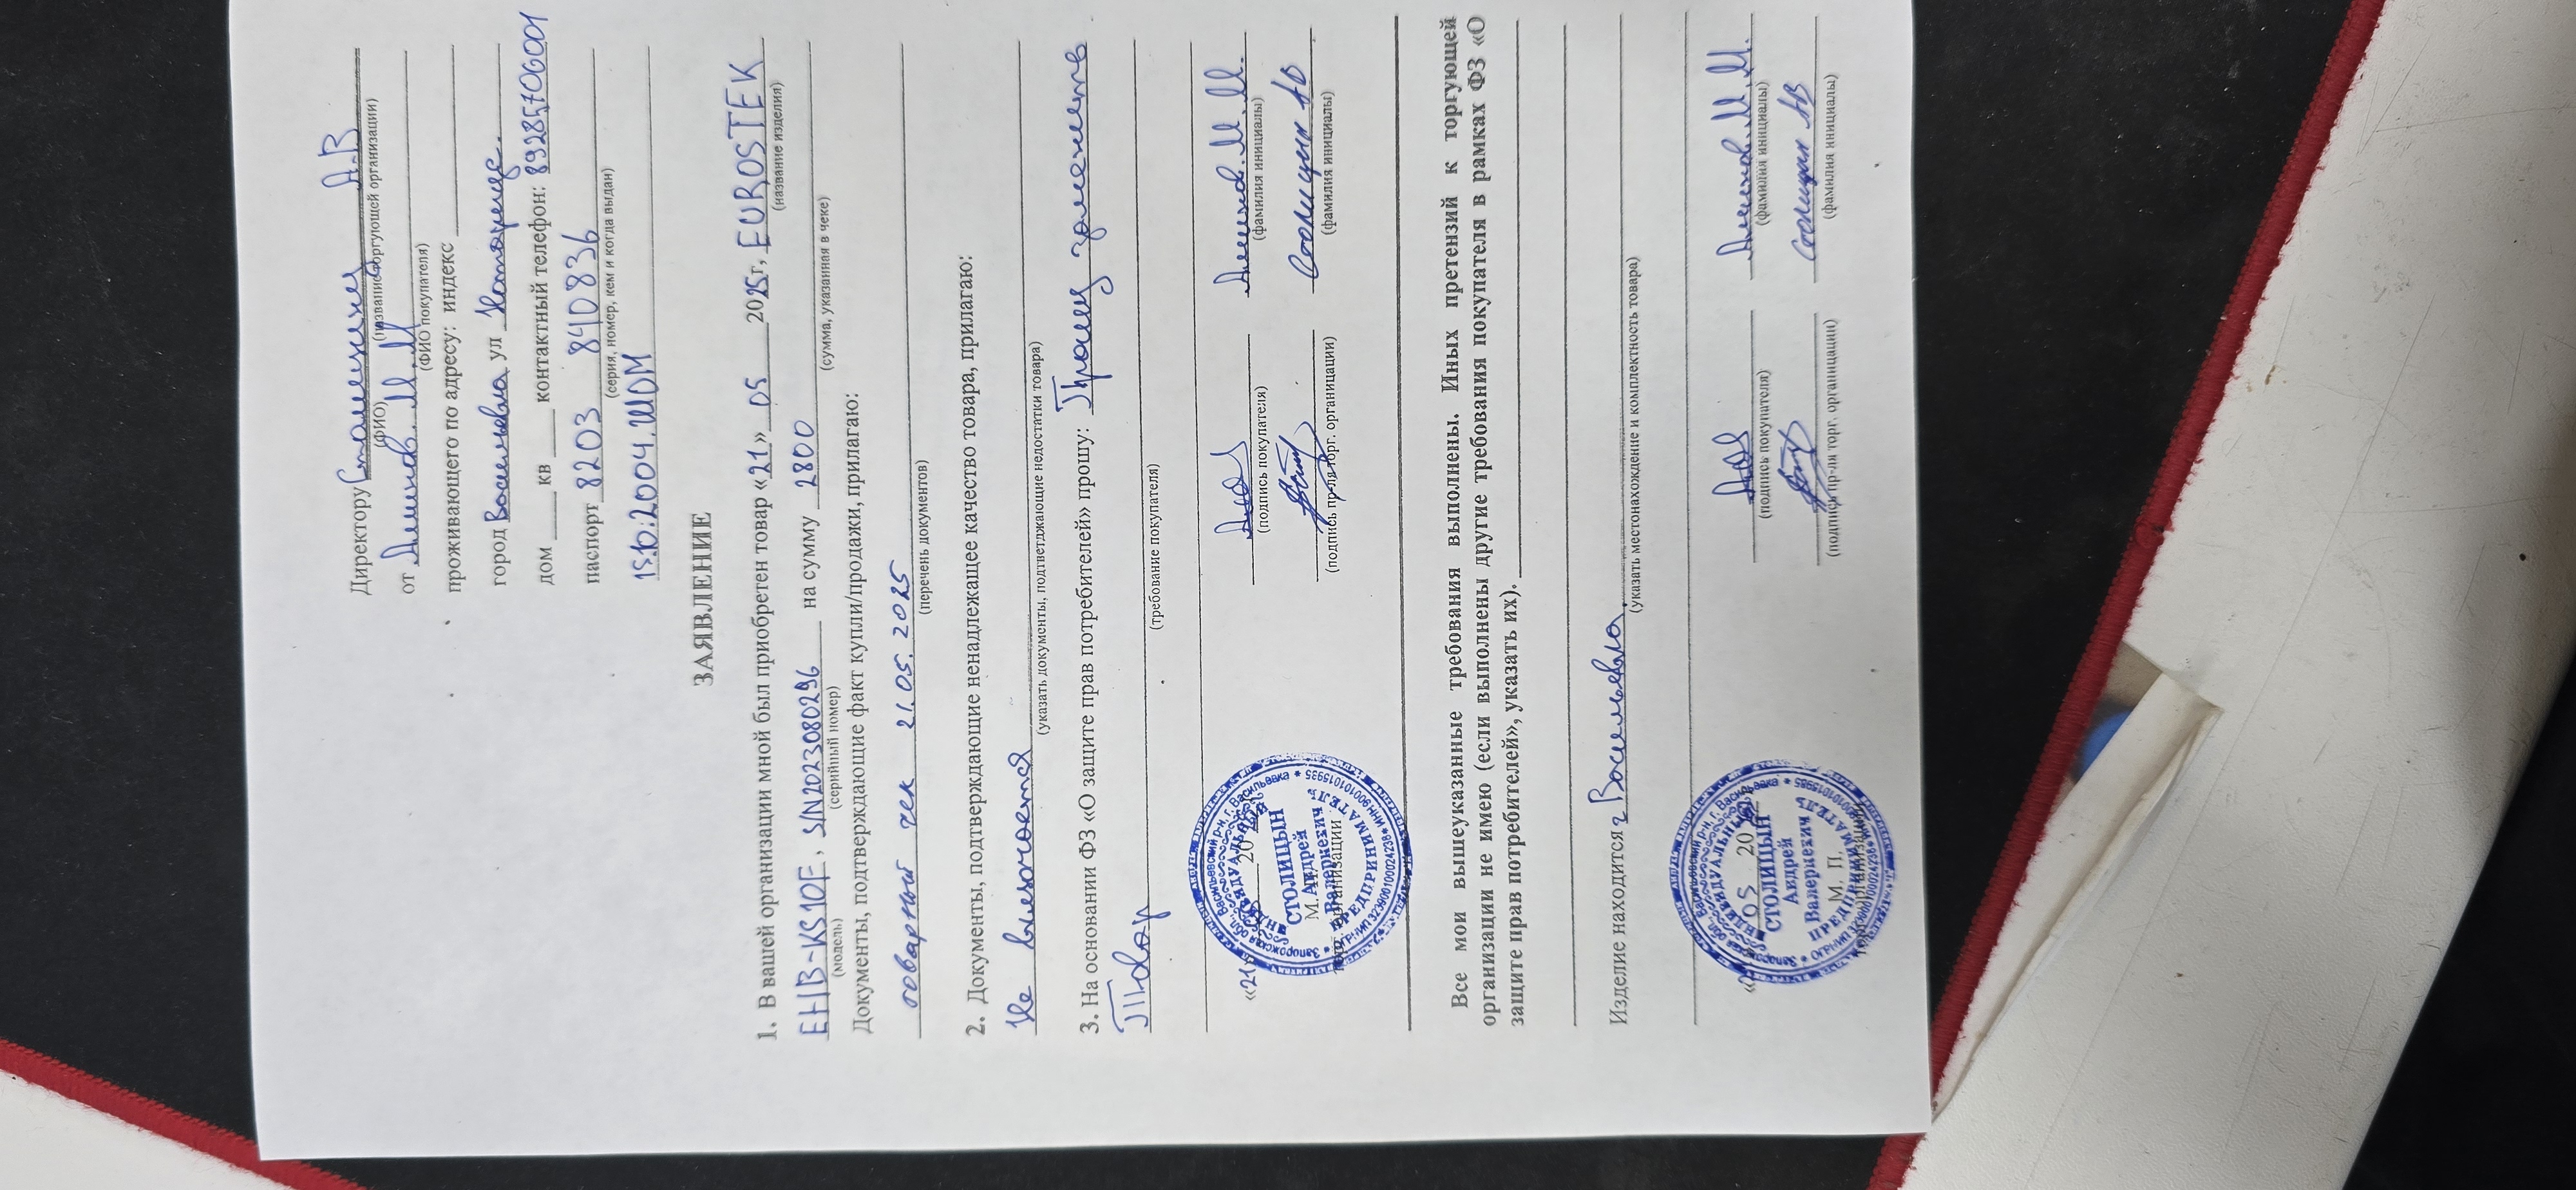 Директору Столицину А.В
(ФИО) (название торгующей организации)
от Алишхов. М.М
(ФИО покупателя)
проживающего по адресу: индекс
город Васильевка ул
дом кв контактный телефон: 89285706001
паспорт 8203 840836
(серия, номер, кем и когда выдан)
15.10.2004.
ЗАЯВЛЕНИЕ
1. В вашей организации мной был приобретен товар «21» 05 2025г, EUROSTEK
(название изделия)
EHB-KS10F, S/N2023080296 на сумму 2800
(модель) (серийный номер) (сумма, указанная в чеке)
Документы, подтверждающие факт купли/продажи, прилагаю:
товарный чек 21.05.2025
(перечень документов)
2. Документы, подтверждающие ненадлежащее качество товара, прилагаю:
Не
(указать документы, подтветджающие недостатки товара)
3. На основании ФЗ «О защите прав потребителей» прошу: Прошу заменить
Товар
(требование покупателя)
«21» 20
(подпись покупателя) (фамилия инициалы)
М.П. Столицин АВ
торг. организации (подпись пр-ля торг. организации) (фамилия инициалы)
СТОЛИЦЫН Андрей Валериевич
ИНДИВИДУАЛЬНЫЙ ПРЕДПРИНИМАТЕЛЬ
Все мои вышеуказанные требования выполнены. Иных претензий к торгующей
организации не имею (если выполнены другие требования покупателя в рамках ФЗ «О
защите прав потребителей», указать их).
Изделие находится г Васильевка.
(указать местонахождение и комплектность товара)
05 20
(подпись покупателя) (фамилия инициалы)
М. П. Столицин АВ
торг. организации (подпись пр-ля торг. организации) (фамилия инициалы)
СТОЛИЦЫН Андрей Валериевич
ИНДИВИДУАЛЬНЫЙ ПРЕДПРИНИМАТЕЛЬ